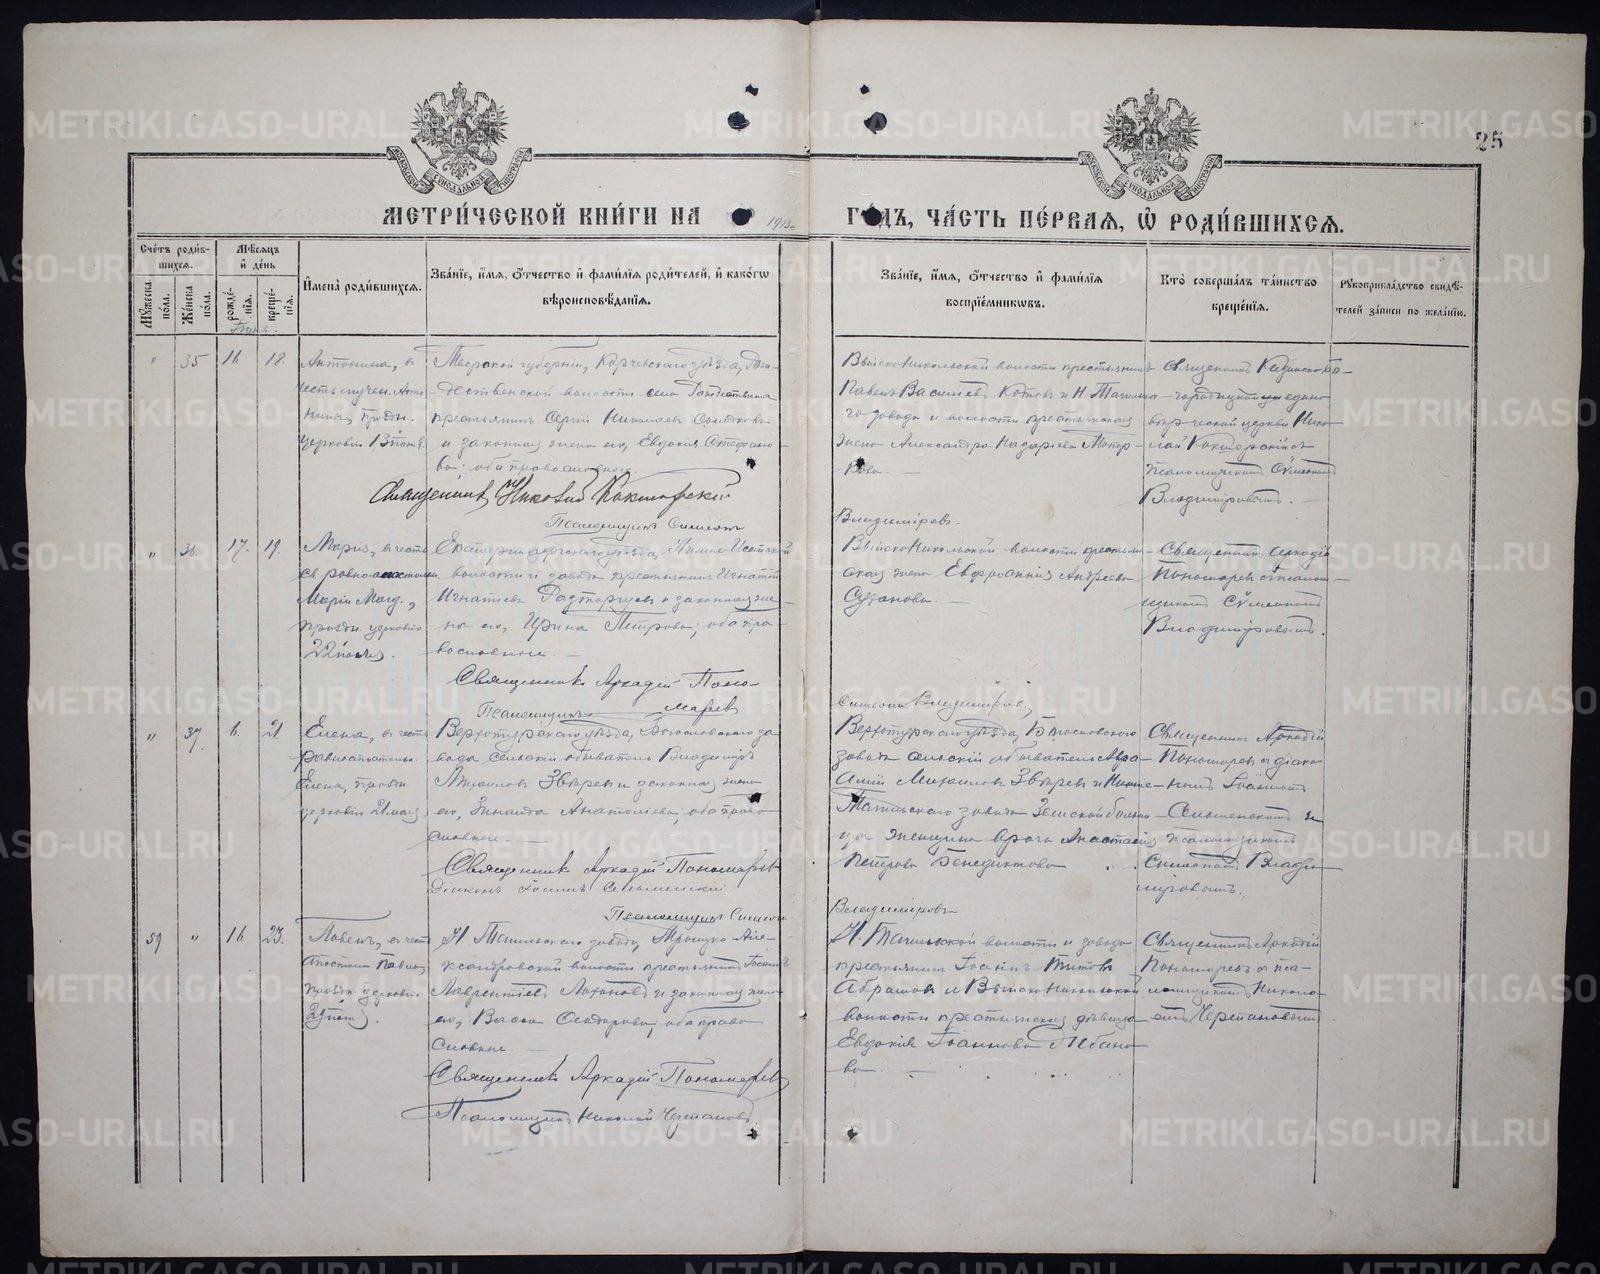 25
МОСКОВСКОЙ СѴНОДАЛЬНОЙ ТИПОГРАФІИ
МОСКОВСКОЙ СѴНОДАЛЬНОЙ ТИПОГРАФІИ
МЕТРИ́ЧЕСКОЙ КНИ́ГИ НА 1913 ГО́ДЪ, ЧА́СТЬ ПЕ́РВАЯ, Ѡ РОДИ́ВШИХСЯ.
Сче́тъ роди́вшихся.
Му́жеска по́ла.
Же́нска по́ла.
Мѣ́сяцъ и де́нь
рожде́нія.
креще́нія.
Имена̀ роди́вшихся.
Зва́нїе, и́мя, о́тчество и фами́лїя роди́телей, и како́гѡ
вѣроисповѣ́данїя.
Зва́нїе, и́мя, о́тчество и фами́лїя
воспрїе́мниковъ.
Кто̀ соверша́лъ та́инство
креще́нїя.
Рукоприкла́дство свидѣ́-
телей за́писи по жела́нїю.
" 35 16 18.
Антонина, въ
церковію 13 іюня
Тверской губерніи, Корчевского уѣзда, Рож-
дественской волости села Рождествина
крестьянинъ Сергій Николаевъ
и законная жена его, Евдокія Стефано-
ва; оба православные.
Священникъ Николай
Псаломщикъ Симеонъ
Владиміровъ.
Выйско-Никольской волости крестьянинъ
Павелъ Василіевъ Котовъ и Н. Тагильска-
го завода и волости крестьянская
жена Александра Назаріева
Священникъ
едино-
вѣрческой церкви Нико-
лай
псаломщикомъ Сѵмеономъ
Владиміровымъ.
" 36 17. 19.
Марія, въ честь
св. равноапостольн.
Маріи Магд.,
праздн. церковію
22 іюля.
Екатеринбургскаго уѣзда, Нижне-Исетской
волости и завода крестьянинъ Игнатій
Игнатіевъ Расторгуевъ и законная же-
на его, Ирина Петрова; оба пра-
вославные.
Священникъ Аркадій Поно-
маревъ
Псаломщикъ
Симеонъ Владиміровъ
Выйско-Никольской волости крестьян-
ская жена Евфросинія Андреева
Суханова.
Священникъ Аркадій
Пономаревъ съ псалом-
щикомъ Сѵмеономъ
Владиміровымъ.
" 37. 6. 21.
Елена, въ честь
равноапостольн.
Елена, праздн.
церковію 21 мая
Верхотурскаго уѣзда, Богословскаго за-
вода сельскій обыватель Владиміръ
Звѣревъ и законная жена
его, Зинаида Анатоліева; оба право-
славные.
Священникъ Аркадій Пономаревъ
Діаконъ Іоаннъ
Псаломщикъ Симеонъ
Владиміровъ
Верхотурскаго уѣзда, Богословскаго
завода сельскій обыватель Авра-
амій Михаиловъ Звѣревъ и Нижне-
Тагильскаго завода Земской больни-
цы женщина врачъ Анастасія
Петрова Бенедиктова
Священникъ Аркадій
Пономаревъ съ діако-
номъ Іоанномъ
и
псаломщикомъ
Симеономъ Влади-
міровымъ.
59 " 16. 23.
Павелъ, въ честь
Апостола Павла,
праздн. церковію
29 іюня.
Н. Тагильского завода, Троицко-Але-
ксандровской волости крестьянинъ Іоаннъ
Лаврентіевъ и законная жена
его, Васса Ѳеодорова; оба право-
славные.
Священникъ Аркадій Пономаревъ
Псаломщикъ Николай Черепановъ.
Н. Тагильской волости и завода
крестьянинъ Іоаннъ Титовъ
Абрамовъ и Выйско-Никольской
волости крестьянская дѣвица
Евдокія Іоаннова
ва.
Священникъ Аркадій
Пономаревъ съ пса-
ломщикомъ Никола-
емъ Черепановымъ
METRIKI.GASO-URAL.RU